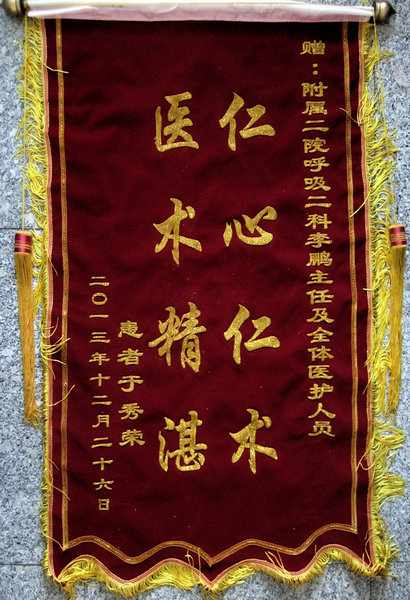 赠：附属二院呼吸二科李鹏主任及全体医护人员
仁心仁术
医术精湛
患者于秀荣
二〇一三年十二月二十六日